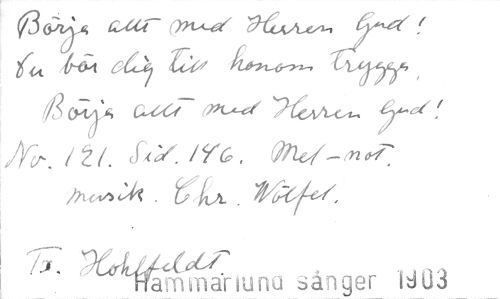 Börja allt med Herren Gud!
Du bör dig till honom trygga,
Börja allt med Herren Gud!
No. 121. Sid. 146. Mel-not.
musik. Chr. Wölfel.
Tr. Hohlfeldt.
Hammarlund sånger 1903